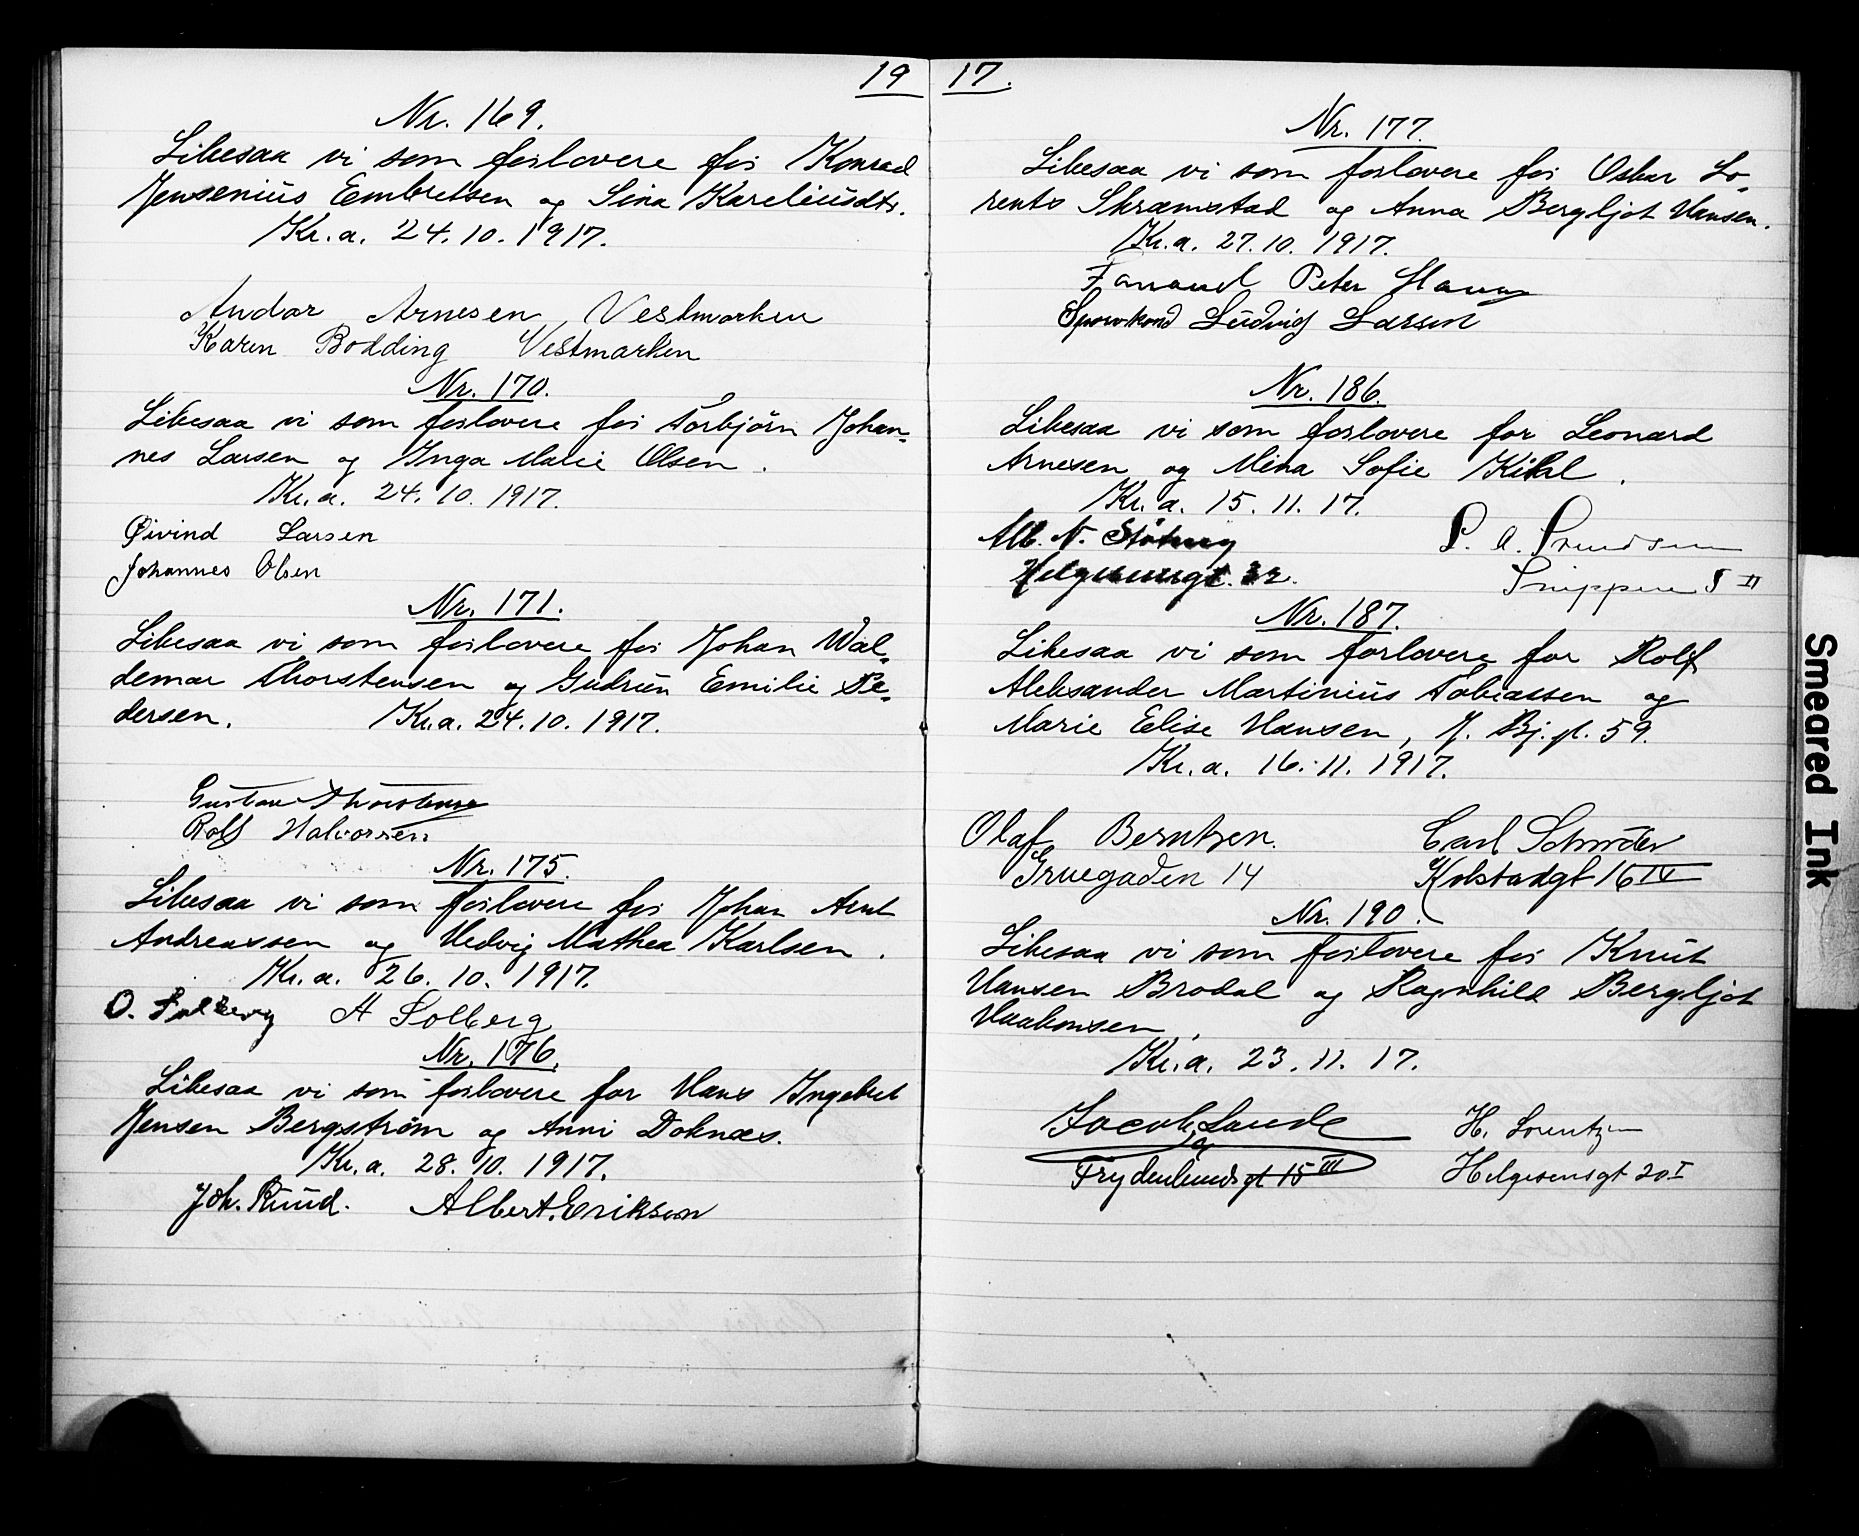 19 17.
Nr. 169.
Likesaa vi som forlovere for Konrad
Jensenius Embretsen og Sina Kareliusdtr.
Kr.a. 24.10.1917.
Andor Arnesen Vestmarken
Karen Bodding Vestmarken
Nr. 170.
Likesaa vi som forlovere for Torbjörn Johan-
nes Larsen og Inga Marie Olsen.
Kr.a. 24.10.1917.
Øivind Larsen
Johannes Olsen
Nr. 171.
Likesaa vi som forlovere for Johan Wal-
demar Thorstensen og Gudrun Emilie Pe-
dersen. Kr.a. 24.10.1917.
Gustav Thorstensen
Rolf Halvorsen
Nr. 175.
Likesaa vi som forlovere for Johan Arnt
Andreassen og Hedvig Mathea Karlsen.
Kr.a. 26.10.1917.
O. Solberg A Solberg
Nr. 176.
Likesaa vi som forlovere for Hans Ingebret
Jensen Bergström og Anni Doknæs.
Kr.a. 28.10.1917.
Joh. Ruud. Albert Erikson
Nr. 177.
Likesaa vi som forlovere for Oskar Lo-
rents Skramstad og Anna Bergljot Hansen.
Kr.a. 27.10.1917.
Peter
Ludvig Larsen
Nr. 186.
Likesaa vi som forlovere for Leonard
Arnesen og Mina Sofie Kihl.
Kr.a. 15.11.17.
Alb. N.
Helgesensgt. 32.
Nr. 187.
Likesaa vi som forlovere for Rolf
Aleksander Martinius Tobiassen og
Marie Elise Hansen, J. Bj. gt. 59.
Kr.a. 16.11.1917.
Olaf Berntzen. Carl Schrøder
Gruegaden 14 Kolstadgt 16 IV
Nr. 190.
Likesaa vi som forlovere for Knut
Hansen Brodal og Ragnhild Bergljot
Haakonsen.
Kr.a. 23.11.17.
Jacob Sande H. Lorentzen
Frydenlundsgt 15 III Helgesensgt 20 I
Smeared Ink